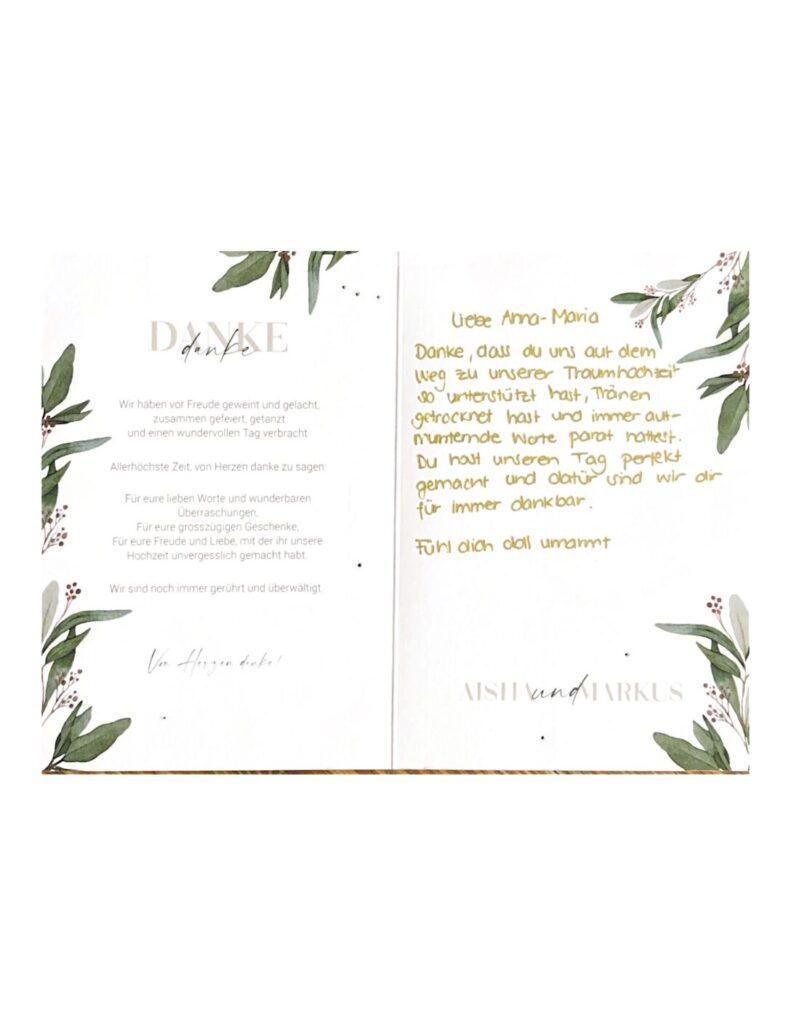 DANKE
danke
Wir haben vor Freude geweint und gelacht,
zusammen gefeiert, getanzt
und einen wundervollen Tag verbracht
Allerhöchste Zeit, von Herzen danke zu sagen:
Für eure lieben Worte und wunderbaren
Überraschungen,
Für eure grosszügigen Geschenke,
Für eure Freude und Liebe, mit der ihr unsere
Hochzeit unvergesslich gemacht habt.
Wir sind noch immer gerührt und überwältigt.
Von Herzen danke!
Liebe Anna-Maria
Danke, dass du uns auf dem
Weg zu unserer Traumhochzeit
so unterstützt hast, Tränen
getrocknet hast und immer auf-
munternde Worte parat hattest.
Du hast unseren Tag perfekt
gemacht und dafür sind wir dir
für immer dankbar.
Fühl dich doll umarmt
AISHA und MARKUS